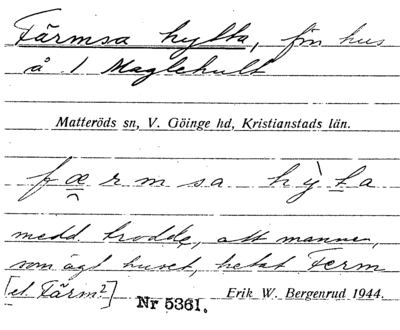 Färmsa hytta, fin hus
å 1 Maglehult
Matteröds sn, V. Göinge hd, Kristianstads län.
færmsa hỳta
medd. trodde, att mannen,
som ägt huset, hetat Ferm
[el. Färm?]
Erik W. Bergenrud 1944.
Nr 5361.